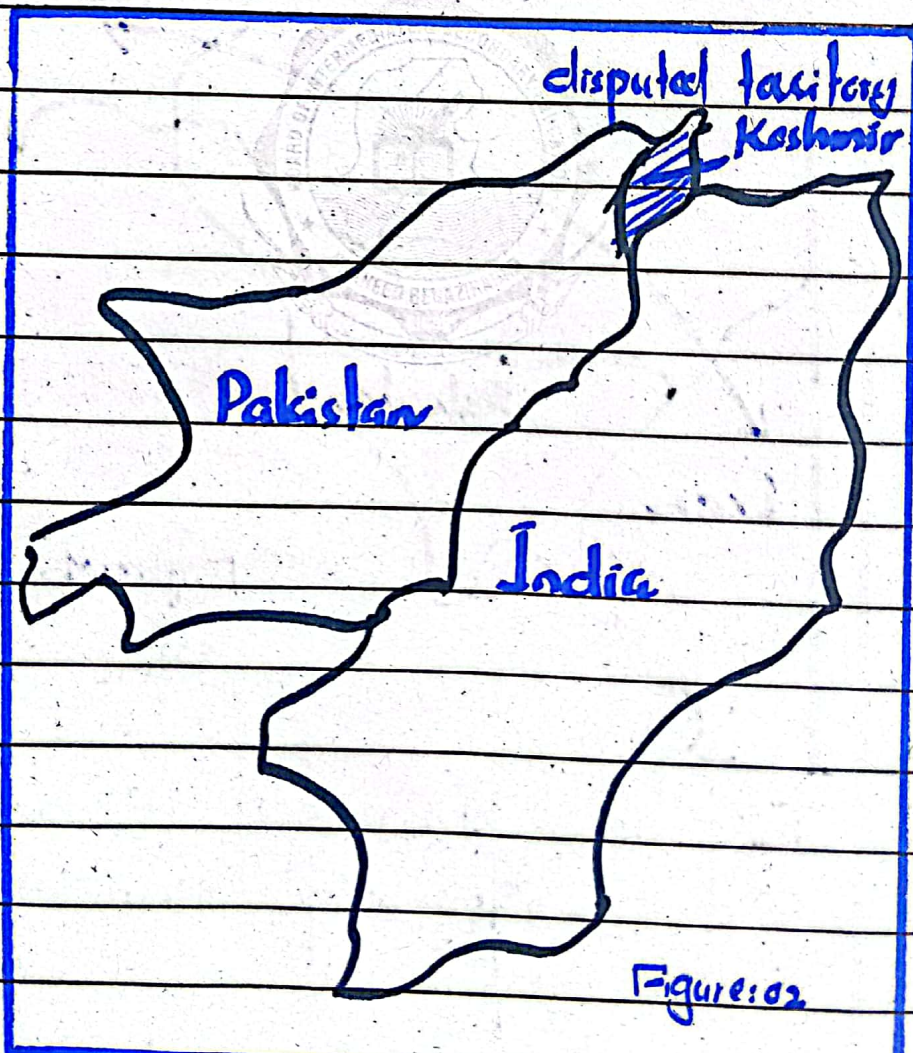 disputed tasitory
Kashmir
Pakistan
India
Figure:02